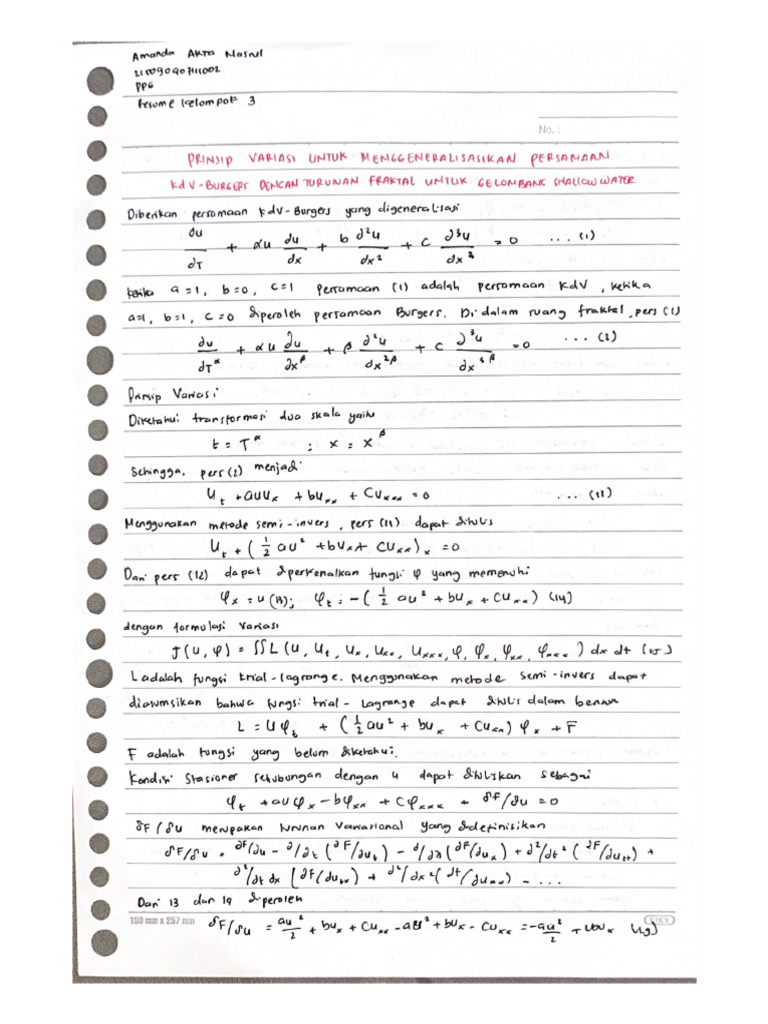 Amanda Akra Nasrul
PPG
Resume Kelompok 3
No. :
PRINSIP VARIASI UNTUK MENGGENERALISASIKAN PERSAMAAN
KdV-BURGERS DENGAN TURUNAN FRAKTAL UNTUK GELOMBANG SHALLOW WATER
Diberikan persamaan KdV-Burgers yang digeneralisasi
∂u/∂T + αu ∂u/∂x + b ∂²u/∂x² + c ∂³u/∂x³ = 0 ... (1)
ketika a=1, b=0, c=1 persamaan (1) adalah persamaan KdV, ketika
a=1, b=1, c=0 diperoleh persamaan Burgers. Di dalam ruang fraktal, pers (1)
∂u/∂T^α + αu ∂u/∂x^β + β ∂²u/∂x^2β + c ∂³u/∂x^3β = 0 ... (2)
Prinsip Variasi
Diketahui transformasi dua skala yaitu
t = T^α ; x = X^β
Sehingga, pers (2) menjadi
u_t + auu_x + bu_xx + cu_xxx = 0 ... (11)
Menggunakan metode semi-invers, pers (11) dapat ditulis
u_t + (½ au² + bu_x + cu_xx)_x = 0
Dari pers (12) dapat diperkenalkan fungsi φ yang memenuhi
φ_x = u (13); φ_t = -(½ au² + bu_x + cu_xx) (14)
dengan formulasi variasi
J(u, φ) = ∬L(u, u_t, u_x, u_xx, u_xxx, φ, φ_x, φ_xx, φ_xxx) dx dt (15)
L adalah fungsi trial-lagrange. Menggunakan metode semi-invers dapat
diasumsikan bahwa fungsi trial-Lagrange dapat ditulis dalam bentuk
L = uφ_t + (½au² + bu_x + cu_xx) φ_x + F
F adalah fungsi yang belum diketahui.
Kondisi Stasioner sehubungan dengan u dapat dituliskan sebagai
φ_t + auφ_x - bφ_xx + cφ_xxx + δF/δu = 0
δF/δu merupakan turunan variasional yang didefinisikan
δF/δu = ∂F/∂u - ∂/∂t (∂F/∂u_t) - ∂/∂x (∂F/∂u_x) + ∂²/∂t² (∂F/∂u_tt) +
∂²/∂t∂x (∂F/∂u_tx) + ∂²/∂x² (∂F/∂u_xx) - ...
Dari 13 dan 14 diperoleh
180 mm x 257 mm
δF/δu = au²/2 + bu_x + cu_xx - au² + bu_x - cu_xx = -au²/2 + 2bu_x (19)
KIKY